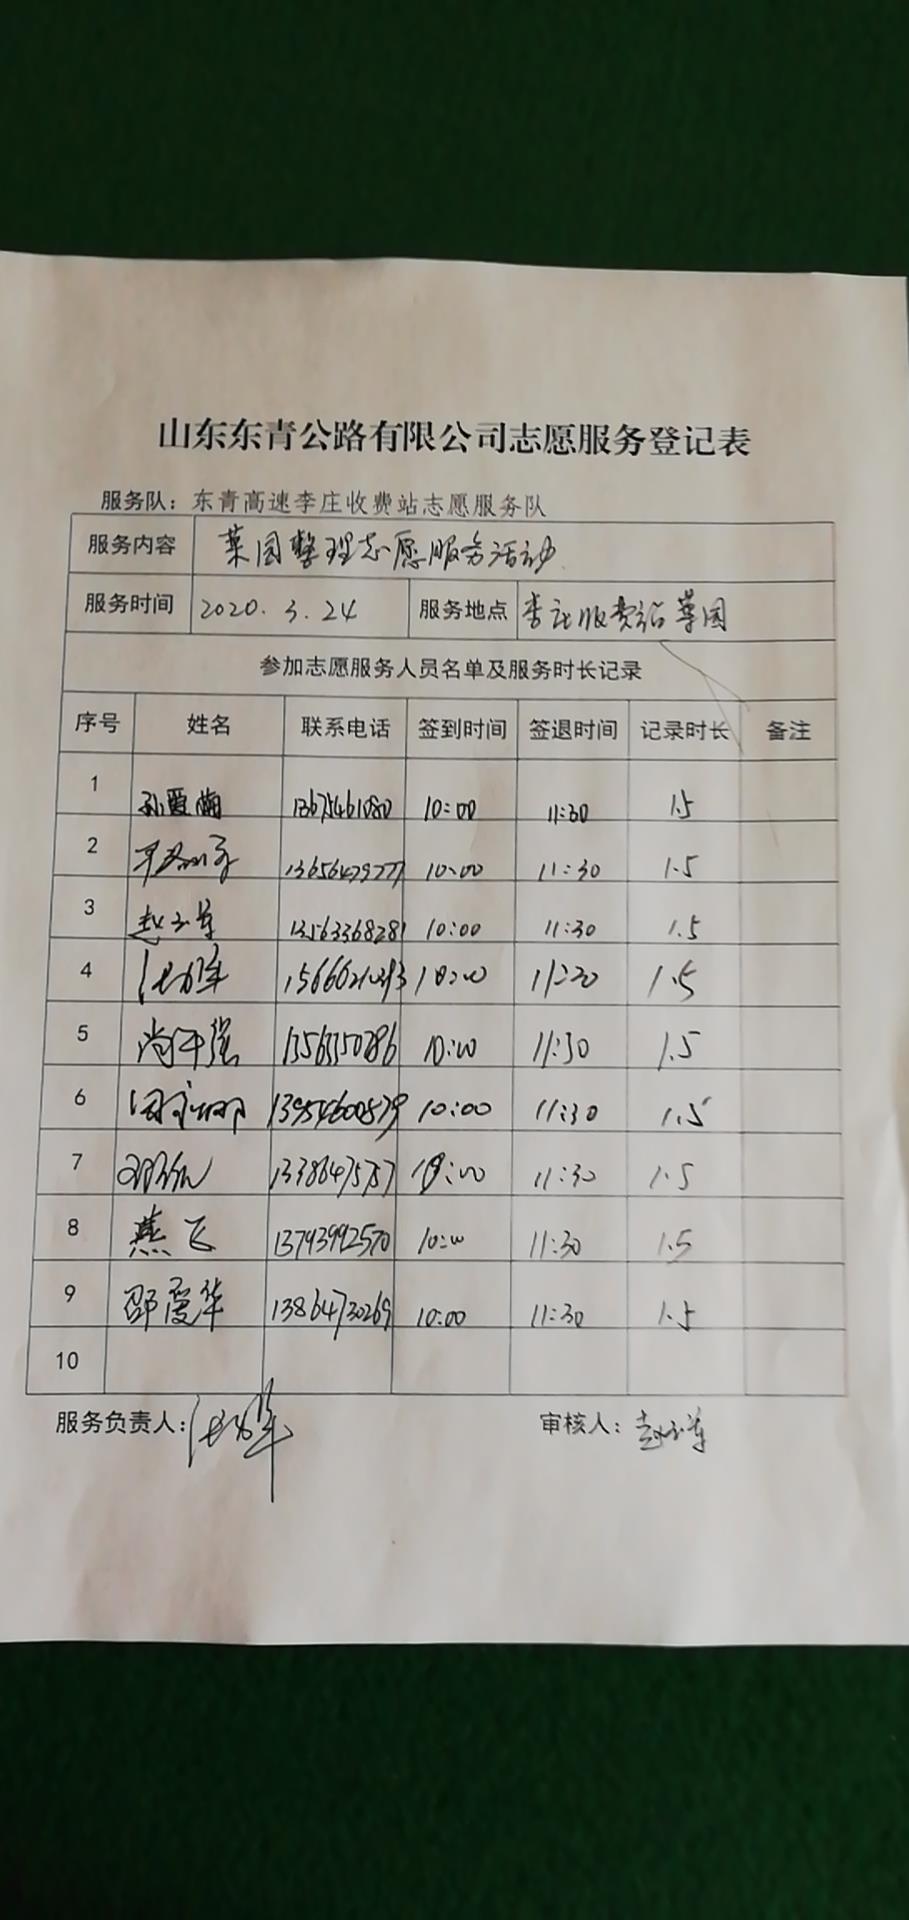 山东东青公路有限公司志愿服务登记表
服务队：东青高速李庄收费站志愿服务队
服务内容 菜园整理志愿服务活动
服务时间 2020.3.24 服务地点 李庄收费站菜园
参加志愿服务人员名单及服务时长记录
序号 姓名 联系电话 签到时间 签退时间 记录时长 备注
1 孙霞 13675461080 10:00 11:30 1.5
2 13656479777 10:00 11:30 1.5
3 赵玉军 13563368281 10:00 11:30 1.5
4 10:00 11:30 1.5
5 尚 13563350286 10:00 11:30 1.5
6 13954600579 10:00 11:30 1.5
7 10:00 11:30 1.5
8 燕飞 13793992570 10:00 11:30 1.5
9 邵爱华 13864730269 10:00 11:30 1.5
10
服务负责人： 审核人：赵玉军